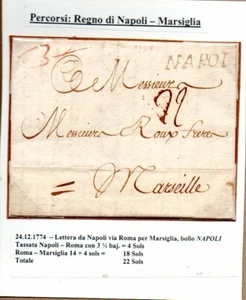 Percorsi: Regno di Napoli – Marsiglia
3
NAPOLI
A Messieurs
22
Messieurs Roux freres
Marseille
24.12.1774 – Lettera da Napoli via Roma per Marsiglia, bollo NAPOLI
Tassata Napoli – Roma con 3 ½ baj. = 4 Sols
Roma – Marsiglia 14 + 4 sols = 18 Sols
Totale 22 Sols